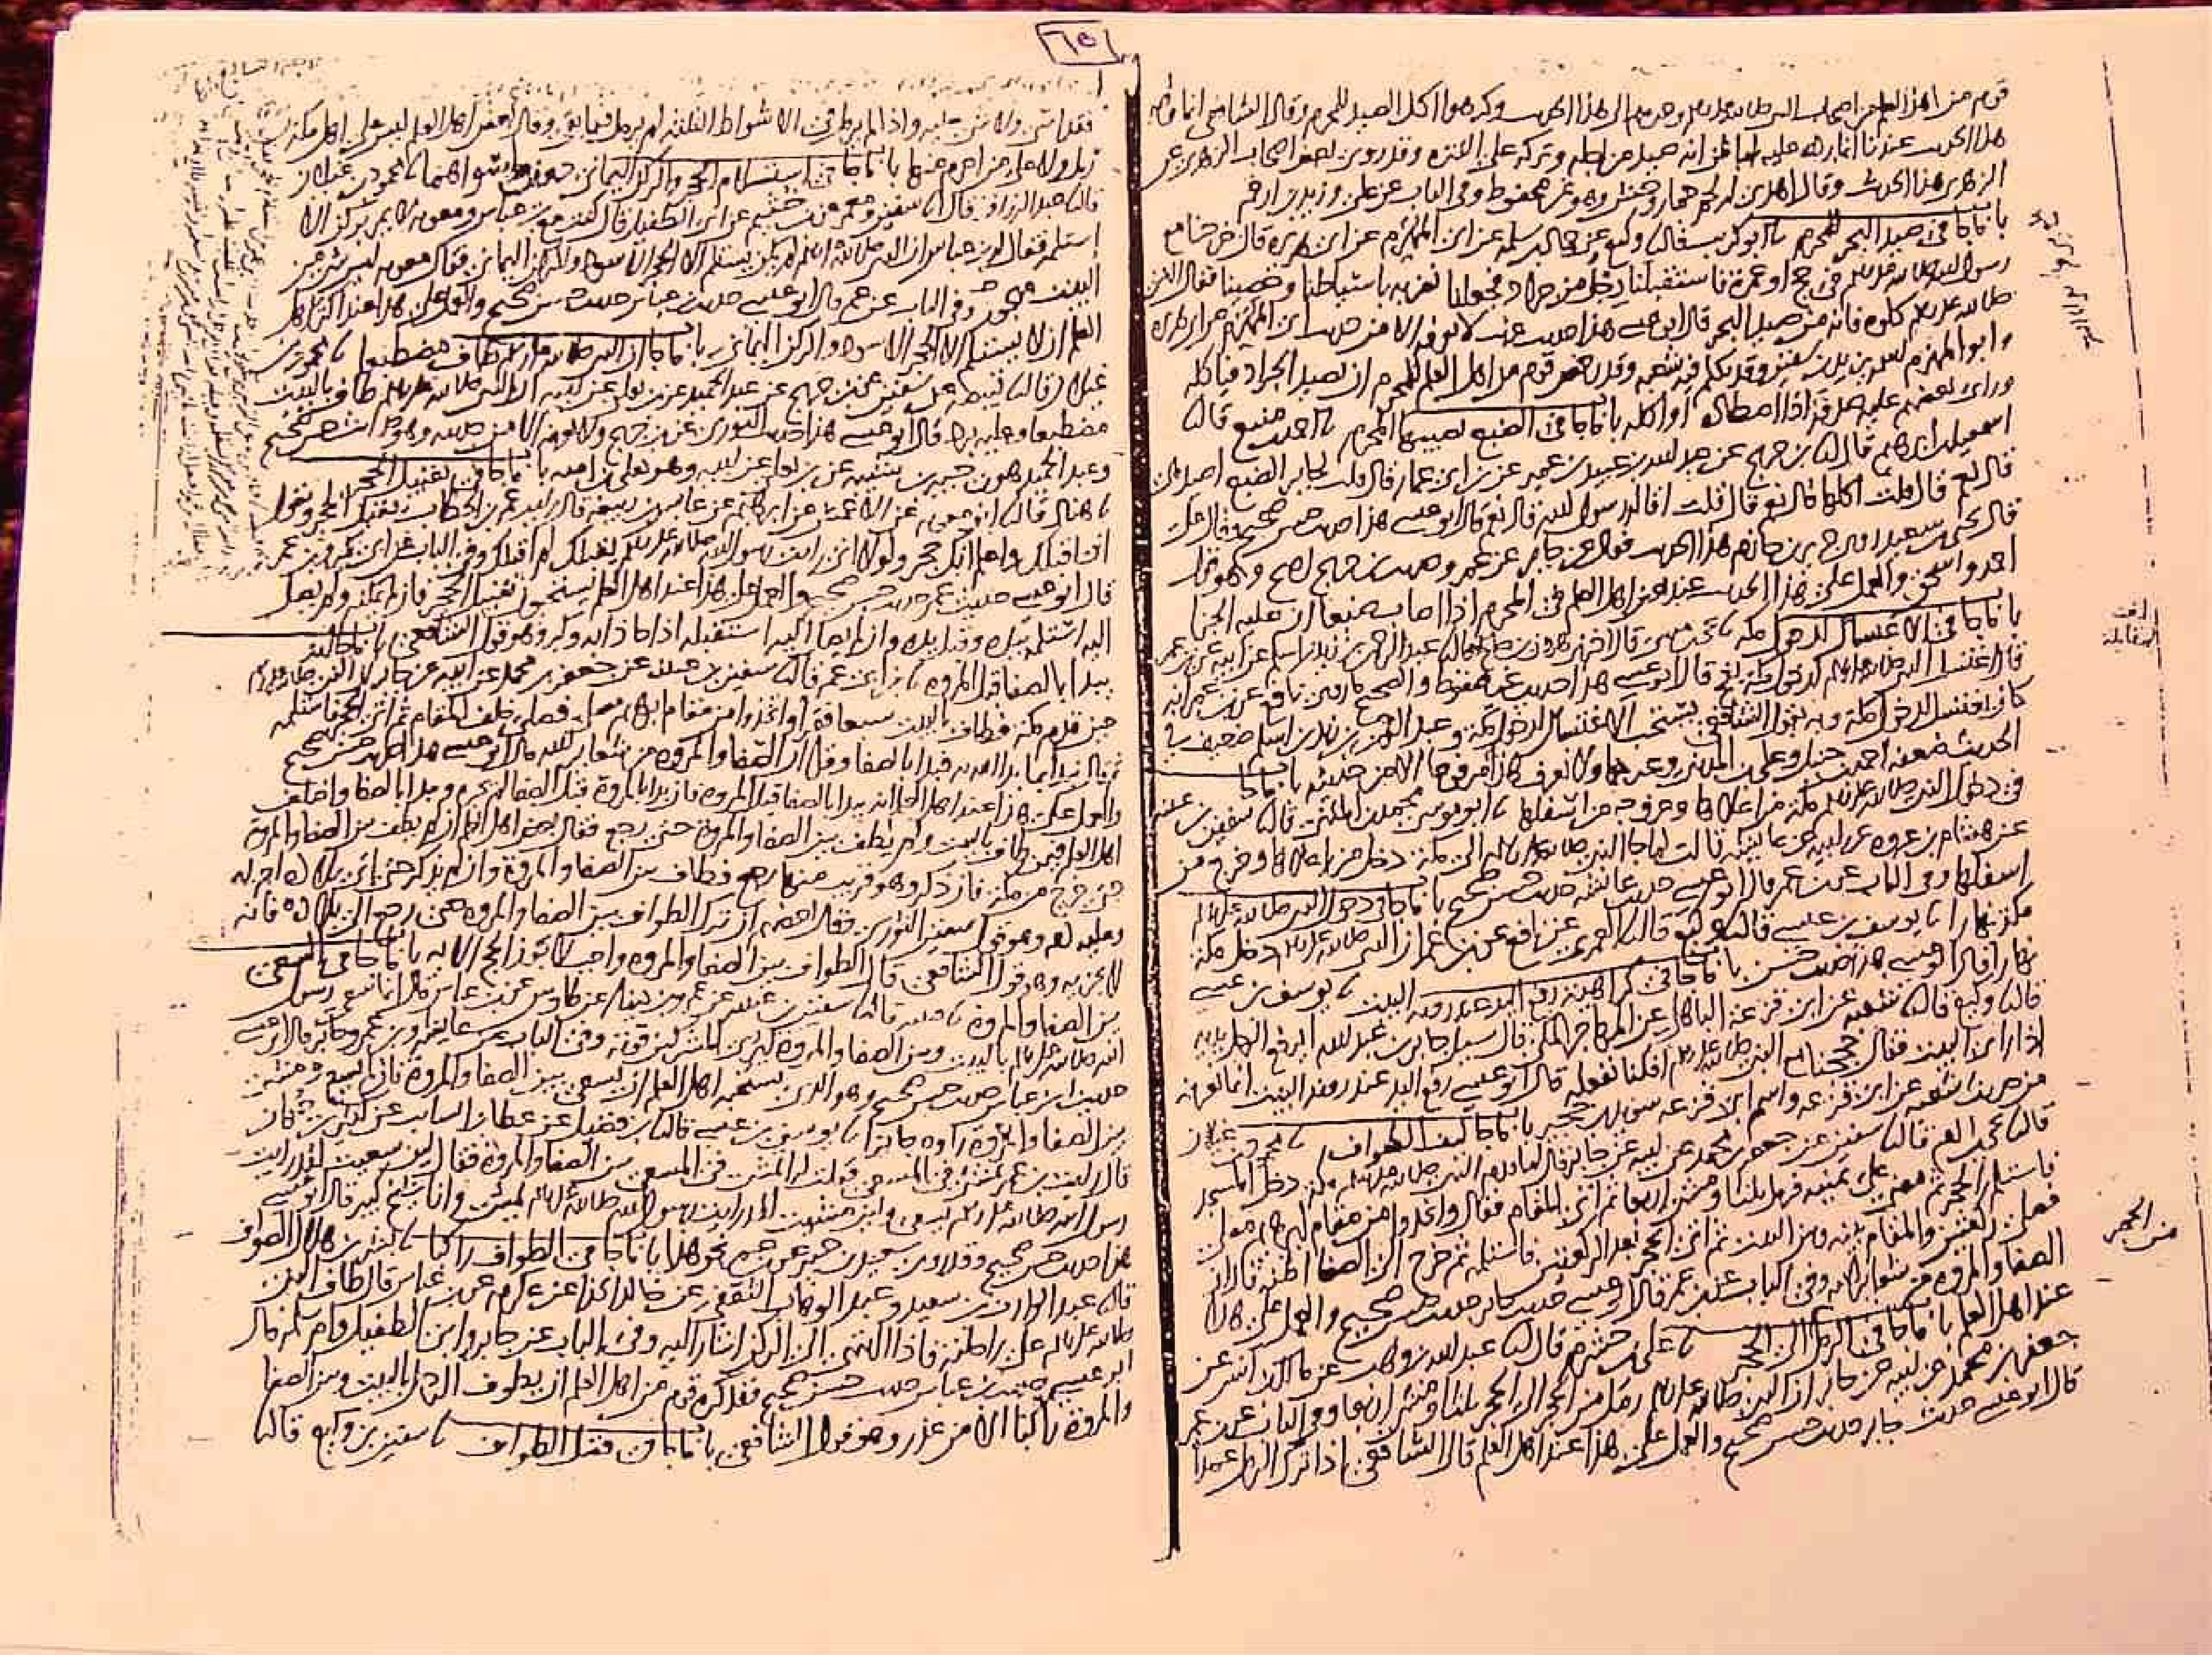 ٦٥
قوم من اهل العلم من اصحاب النبي صلى الله عليه وسلم وغيرهم الى هذا الحديث وكرهوا اكل الصيد للمحرم وقال الشافعي انما وجه
هذا الحديث عندنا انما رده عليه لما ظن انه صيد من اجله وتركه على التنزه وقد روى بعض اصحاب الزهري عن
الزهري هذا الحديث وقال اهدى له لحم حمار وحش وهو غير محفوظ وفي الباب عن علي وزيد بن ارقم
باب ما جا في صيد البحر للمحرم ثنا ابو كريب قال ثنا وكيع عن حماد بن سلمه عن ابي المهزم عن ابي هريرة قال خرجنا مع
رسول الله صلى الله عليه وسلم في حج او عمرة فاستقبلنا رجل من جراد فجعلنا نضربه باسياطنا وعصينا فقال النبي
صلى الله عليه وسلم كلوه فانه من صيد البحر قال ابو عيسى هذا حديث غريب لا نعرفه الا من حديث ابي المهزم عن ابي هريرة
وابو المهزم اسمه يزيد بن سفين وقد تكلم فيه شعبه وقد رخص قوم من اهل العلم للمحرم ان يصيد الجراد فياكله
وراى بعضهم عليه صدقة اذا اصطاده او اكله باب ما جا في الضبع يصيبها المحرم ثنا احمد بن منيع قال ثنا
اسمعيل بن ابرهيم قال ثنا ابن جريج عن عبد الله بن عبيد بن عمير عن ابن ابي عمار قال قلت لجابر الضبع اصيد هي
قال نعم قال قلت اكلها قال نعم قال قلت اقاله رسول الله قال نعم قال ابو عيسى هذا حديث حسن صحيح قال علي
قال يحيى بن سعيد وروى جرير بن حازم هذا الحديث فقال عن جابر عن عمر وحديث ابن جريج اصح وهو قول
احمد واسحق والعمل على هذا الحديث عند بعض اهل العلم في المحرم اذا اصاب ضبعا ان عليه الجزا
باب ما جا في الاغتسال لدخول مكه ثنا يحيى بن موسى قال اخبرني هرون بن صالح قال ثنا عبد الرحمن بن زيد بن اسلم عن ابيه عن ابن عمر
قال اغتسل النبي صلى الله عليه وسلم لدخول مكة بفخ قال ابو عيسى هذا حديث غير محفوظ والصحيح ما روى نافع عن ابن عمر انه
كان يغتسل لدخول مكة وبه يقول الشافعي يستحب الاغتسال لدخول مكة وعبد الرحمن بن زيد بن اسلم ضعيف في
الحديث ضعفه احمد بن حنبل وعلي بن المديني وغيرهما ولا نعرف هذا مرفوعا الا من حديثه باب ما جا
في دخول النبي صلى الله عليه وسلم مكة من اعلاها وخروجه من اسفلها ثنا ابو موسى محمد بن المثنى قال ثنا سفين بن عيينه
عن هشام بن عروه عن ابيه عن عايشه قالت لما جا النبي صلى الله عليه وسلم الى مكة دخل من اعلاها وخرج من
اسفلها وفي الباب عن ابن عمر قال ابو عيسى حديث عائشه حديث حسن صحيح باب ما جا في دخول النبي صلى الله عليه وسلم
مكة نهارا ثنا يوسف بن عيسى قال ثنا وكيع قال ثنا العمري عن نافع عن ابن عمر ان النبي صلى الله عليه وسلم دخل مكة
نهارا قال ابو عيسى هذا حديث حسن باب ما جا في كراهية رفع اليد عند رويه البيت ثنا يوسف بن عيسى
قال ثنا وكيع قال ثنا شعبه عن ابي قزعة الباهلي عن المهاجر المكي قال سيل جابر بن عبد الله ايرفع الرجل يديه
اذا راى البيت فقال حججنا مع النبي صلى الله عليه وسلم افكنا نفعله قال ابو عيسى رفع اليد عند رويه البيت انما نعرفه
من حديث شعبه عن ابي قزعه واسم ابي قزعه سويد بن حجير باب ما جا كيف الطواف ثنا محمود بن غيلان
قال ثنا يحيى بن ادم قال ثنا سفين عن جعفر بن محمد عن ابيه عن جابر قال لما قدم النبي صلى الله عليه وسلم مكة دخل المسجد
فاستلم الحجر ثم مضى على يمينه فرمل ثلثا ومشى اربعا ثم اتى المقام فقال واتخذوا من مقام ابرهيم مصلى
فصلى ركعتين والمقام بينه وبين البيت ثم اتى الحجر بعد الركعتين فاستلمه ثم خرج الى الصفا اظنه قال ان
الصفا والمروه من شعاير الله وفي الباب عن ابن عمر قال ابو عيسى حديث جابر حديث حسن صحيح والعمل على هذا
عند اهل العلم باب ما جا في الرمل من الحجر الى الحجر ثنا علي بن خشرم قال ثنا عبد الله بن وهب عن مالك بن انس عن
جعفر بن محمد عن ابيه عن جابر ان النبي صلى الله عليه وسلم رمل من الحجر الى الحجر ثلثا ومشى اربعا وفي الباب عن ابن عمر
قال ابو عيسى حديث جابر حديث حسن صحيح والعمل على هذا عند اهل العلم قال الشافعي اذا ترك الرمل عمدا
بلغت
مقابلة
من الحجر
فقد اسا ولا شي عليه واذا لم يرمل في الاشواط الثلثة لم يرمل فيما بقي وقال بعض اهل العلم ليس على اهل مكة
رمل ولا على من احرم منها باب ما جا في استلام الحجر والركن اليماني دون ما سواهما ثنا محمود بن غيلان
قال ثنا عبد الرزاق قال ثنا سفين ومعمر عن ابن خثيم عن ابي الطفيل قال كنت مع ابن عباس ومعويه لا يمر بركن الا
استلمه فقال ابن عباس ان النبي صلى الله عليه وسلم لم يكن يستلم الا الحجر الاسود والركن اليماني فقال معويه ليس شي من
البيت مهجور وفي الباب عن عمر قال ابو عيسى حديث ابن عباس حديث حسن صحيح والعمل على هذا عند اكثر اهل
العلم ان لا يستلم الا الحجر الاسود والركن اليماني باب ما جا ان النبي صلى الله عليه وسلم طاف مضطبعا ثنا محمود بن
غيلان قال ثنا قبيصه عن سفين عن ابن جريج عن عبد الحميد عن ابن يعلى عن ابيه ان النبي صلى الله عليه وسلم طاف بالبيت
مضطبعا وعليه برد قال ابو عيسى هذا حديث الثوري عن ابن جريج ولا نعرفه الا من حديثه وهو حديث حسن صحيح
وعبد الحميد هو بن جبير بن شيبه عن ابن يعلى عن ابيه وهو يعلى بن اميه باب ما جا في تقبيل الحجر
ثنا هناد قال ثنا ابو معويه عن الاعمش عن ابرهيم عن عابس بن ربيعه قال رايت عمر بن الخطاب يقبل الحجر ويقول
اني اقبلك واعلم انك حجر ولولا اني رايت رسول الله صلى الله عليه وسلم يقبلك لم اقبلك وفي الباب عن ابي بكر وبن عمر
قال ابو عيسى حديث عمر حديث حسن صحيح والعمل على هذا عند اهل العلم يستحبون تقبيل الحجر فان لم يمكنه ولم يصل
اليه استلمه بيده وقبل يده وان لم يصل اليه استقبله اذا حاذا به وكبر وهو قول الشافعي باب ما جا انه
يبدا بالصفا قبل المروه ثنا بن ابي عمر قال ثنا سفين بن عيينه عن جعفر بن محمد عن ابيه عن جابر ان النبي صلى الله عليه وسلم
حين قدم مكة فطاف بالبيت سبعا فقرا واتخذوا من مقام ابرهيم مصلى فصلى خلف المقام ثم اتى الحجر فاستلمه
ثم قال نبدا بما بدا الله به فبدا بالصفا وقرا ان الصفا والمروه من شعاير الله قال ابو عيسى هذا حديث حسن صحيح
والعمل على هذا عند اهل العلم انه يبدا بالصفا قبل المروه فان بدا بالمروة قبل الصفا لم يجزه وبدا بالصفا واختلف
اهل العلم فيمن طاف بالبيت ولم يطف بين الصفا والمروة حتى رجع فقال بعض اهل العلم ان لم يطف بين الصفا والمروة
حتى خرج من مكة فان ذكر وهو قريب منها رجع فطاف بين الصفا والمروة وان لم يذكر حتى اتى بلاده اجزاه
وعليه دم وهو قول سفين الثوري وقال بعضهم ان ترك الطواف بين الصفا والمروه حتى رجع الى بلاده فانه
لا يجزيه وهو قول الشافعي قال الطواف بين الصفا والمروه واجب لا يجوز الحج الا به باب ما جا في السعي
بين الصفا والمروة ثنا قتيبه قال ثنا سفين بن عيينه عن عمرو بن دينار عن طاوس عن ابن عباس قال انما سعى رسول
الله صلى الله عليه وسلم بالبيت وبين الصفا والمروه ليري المشركين قوته وفي الباب عن عايشه وبن عمر وجابر قال ابو عيسى
حديث ابن عباس حديث حسن صحيح وهو الذي يستحبه اهل العلم ان يسعى بين الصفا والمروة فان لم يسع ومشى
بين الصفا والمروه راوه جائزا ثنا يوسف بن عيسى قال ثنا بن فضيل عن عطا بن السايب عن كثير بن جمهان
قال رايت بن عمر يمشي في المسعى فقلت له اتمشي في المسعى بين الصفا والمروة فقال لين سعيت لقد رايت
رسول الله صلى الله عليه وسلم يسعى ولين مشيت لقد رايت رسول الله صلى الله عليه وسلم يمشي وانا شيخ كبير قال ابو عيسى
هذا حديث حسن صحيح وقد روى سعيد بن جبير عن بن عمر نحو هذا باب ما جا في الطواف راكبا ثنا بشر بن هلال الصواف
قال ثنا عبد الوارث بن سعيد وعبد الوهاب الثقفي عن خالد الحذا عن عكرمه عن ابن عباس قال طاف النبي
صلى الله عليه وسلم على راحلته فاذا انتهى الى الركن اشار اليه وفي الباب عن جابر وابي الطفيل وام سلمة قال
ابو عيسى حديث بن عباس حديث حسن صحيح وقد كره قوم من اهل العلم ان يطوف الرجل بالبيت وبين الصفا
والمروة راكبا الا من عذر وهو قول الشافعي باب ما جا في فضل الطواف ثنا سفين بن وكيع قال ثنا